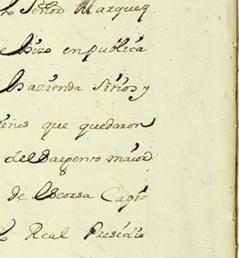 Señor Marquez
hizo en publica
hazienda sitios y
que quedaron
del Sargento maior
de Escorsa Capi-
Real Presidio